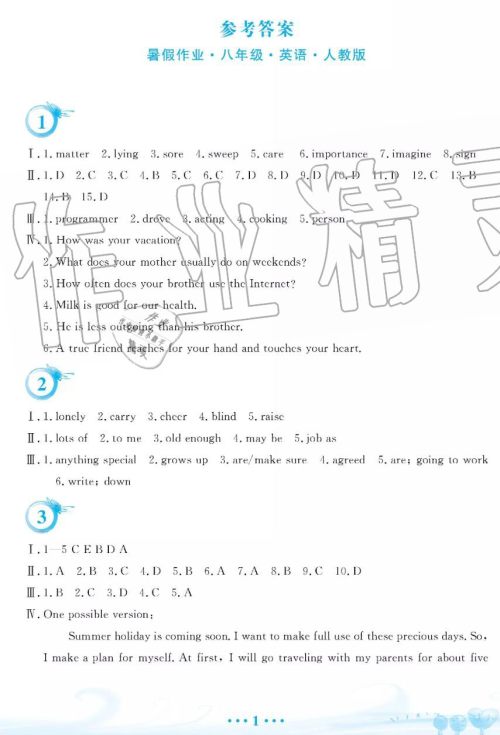 参考答案
暑假作业·八年级·英语·人教版
1
Ⅰ. 1. matter 2. lying 3. sore 4. sweep 5. care 6. importance 7. imagine 8. sign
Ⅱ. 1. D 2. C 3. C 4. B 5. C 6. C 7. D 8. D 9. D 10. D 11. D 12. C 13. B
14. B 15. D
Ⅲ. 1. programmer 2. drove 3. acting 4. cooking 5. person
Ⅳ. 1. How was your vacation?
2. What does your mother usually do on weekends?
3. How often does your brother use the Internet?
4. Milk is good for our health.
5. He is less outgoing than his brother.
6. A true friend reaches for your hand and touches your heart.
2
Ⅰ. 1. lonely 2. carry 3. cheer 4. blind 5. raise
Ⅱ. 1. lots of 2. to me 3. old enough 4. may be 5. job as
Ⅲ. 1. anything special 2. grows up 3. are/make sure 4. agreed 5. are; going to work
6. write; down
3
Ⅰ. 1—5 C E B D A
Ⅱ. 1. A 2. B 3. C 4. D 5. B 6. A 7. A 8. B 9. C 10. D
Ⅲ. 1. B 2. C 3. D 4. C 5. A
Ⅳ. One possible version:
Summer holiday is coming soon. I want to make full use of these precious days. So,
I make a plan for myself. At first, I will go traveling with my parents for about five
••• 1 •••
作业精灵